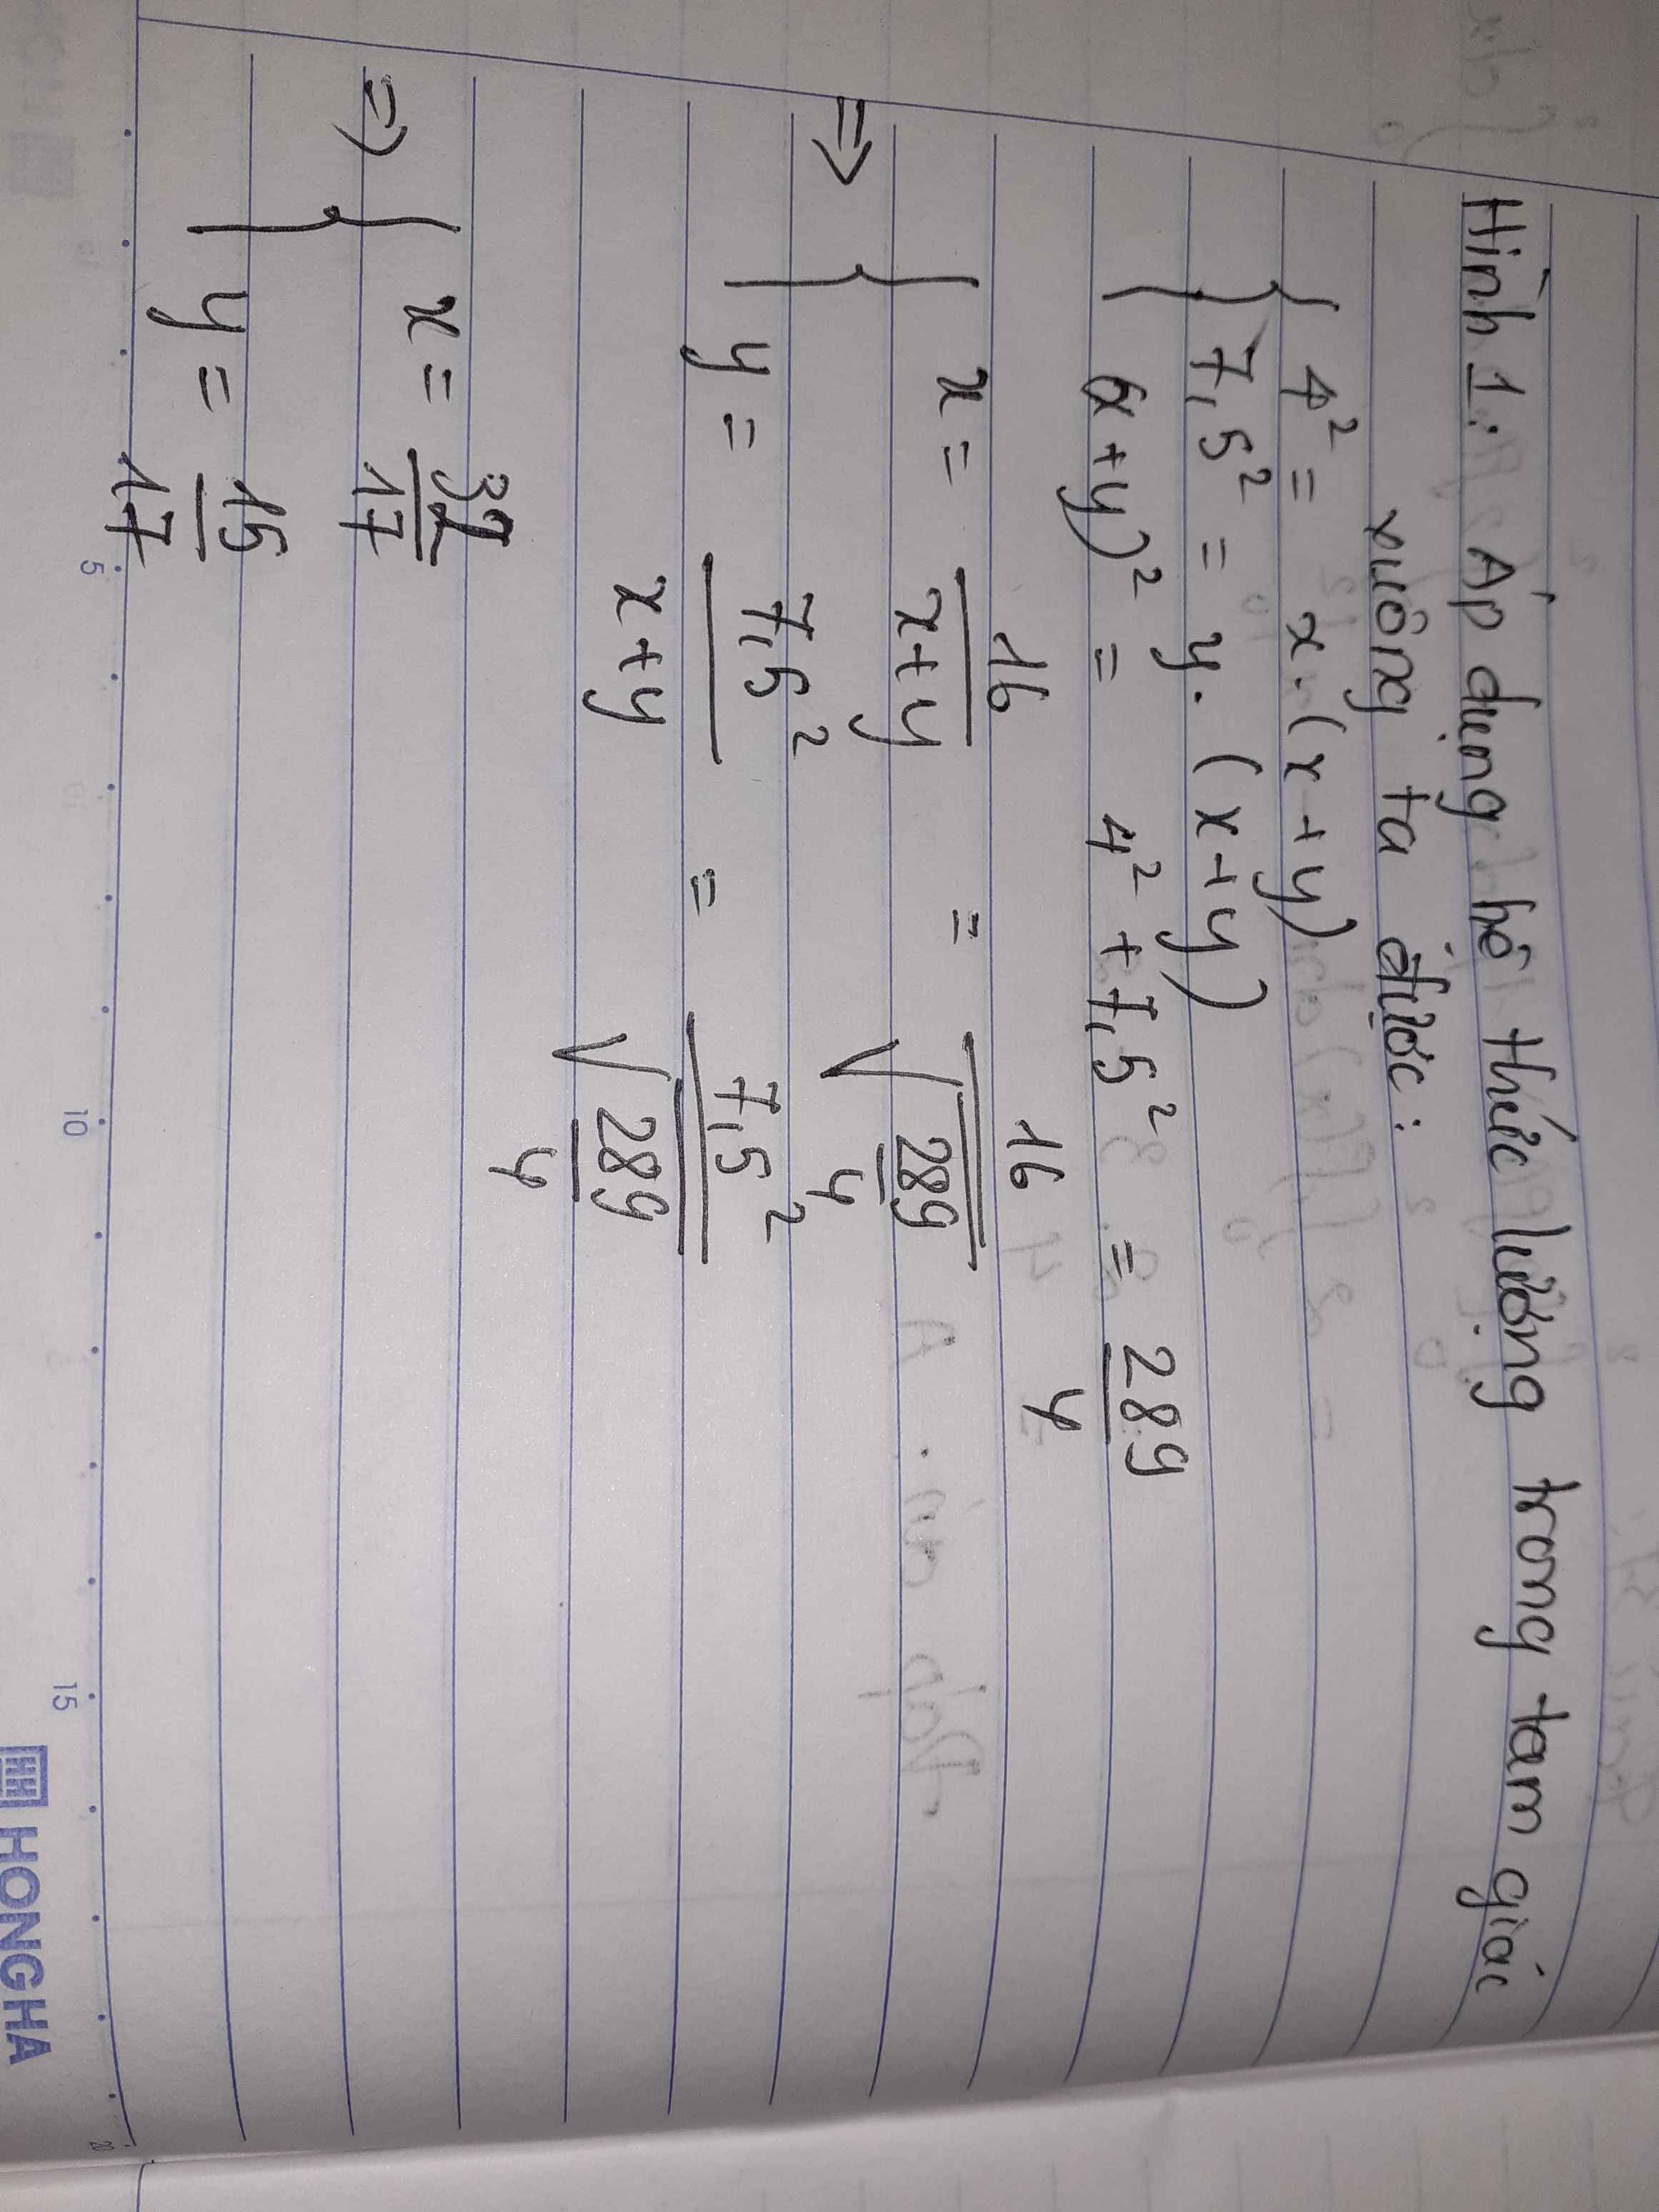 Hình 1: Áp dụng hệ thức lượng trong tam giác
vuông ta được:
{ 4² = x.(x+y)
7,5² = y.(x+y)
(x+y)² = 4² + 7,5² = 289/4
=> { x = 16/(x+y) = 16/√(289/4)
y = 7,5²/(x+y) = 7,5²/√(289/4)
=> { x = 32/17
y = 15/17
5 10 15 20
HH HONGHA